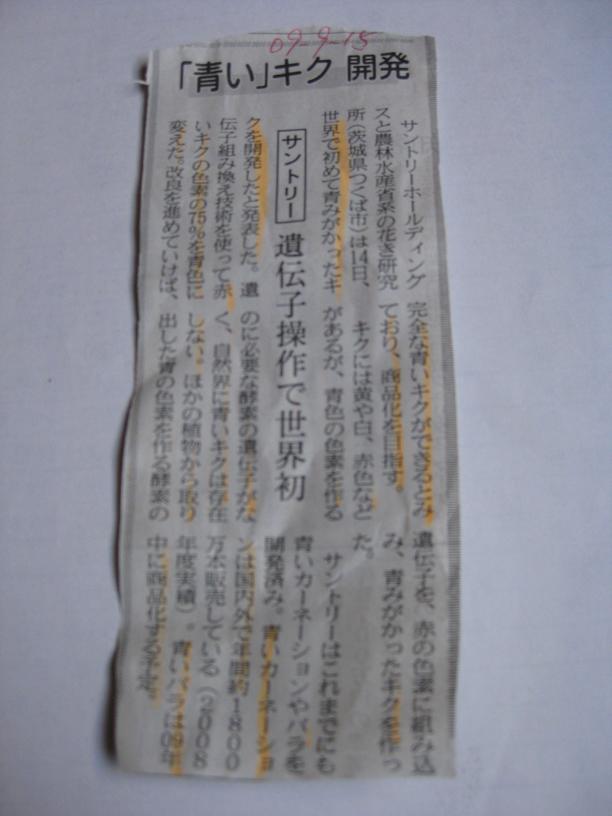 09-9-15
「青い」キク 開発
サントリー 遺伝子操作で世界初
サントリーホールディング
スと農林水産省系の花き研究
所(茨城県つくば市)は14日、
世界で初めて青みがかったキ
クを開発したと発表した。遺
伝子組み換え技術を使って赤
いキクの色素の75%を青色に
変えた。改良を進めていけば、
完全な青いキクができるとみ
ており、商品化を目指す。
キクには黄や白、赤色など
があるが、青色の色素を作る
のに必要な酵素の遺伝子がな
く、自然界に青いキクは存在
しない。ほかの植物から取り
出した青の色素を作る酵素の
遺伝子を、赤の色素に組み込
み、青みがかったキクを作っ
た。
サントリーはこれまでにも
青いカーネーションやバラを
開発済み。青いカーネーショ
ンは国内外で年間約1800
万本販売している(2008
年度実績)。青いバラは09年
中に商品化する予定。